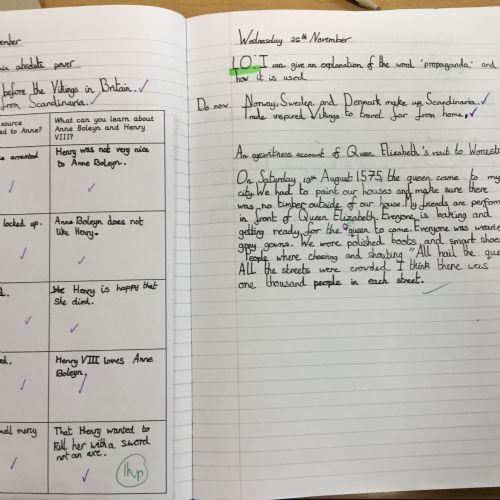 ember
an absolute power
before the Vikings in Britain.
from Scandinavia.
source
ed to Anne?
What can you learn about
Anne Boleyn and Henry
VIII?
arrested
Henry was not very nice
to Anne Boleyn.
locked up.
Anne Boleyn does not
like Henry.
Henry is happy that
she died.
Henry VIII loves Anne
Boleyn.
mercy
That Henry wanted to
kill her with a sword
not an axe.
Wednesday 26th November
LO: I can give an explanation of the word 'propaganda' and
how it is used.
Do now
Norway, Sweden and Denmark make up Scandinavia.
Trade inspired Vikings to travel far from home.
An eyewitness account of Queen Elizabeth's visit to Worceste
On Saturday 13th August 1575, the queen came to my
city. We had to paint our houses and make sure there
was no timber outside of our house. My friends are perform
in front of Queen Elizabeth. Everyone is baking and
getting ready for the queen to come. Everyone was wearin
grey gowns. We wore polished boots and smart shoes
People where cheering and shouting "All hail the que
All the streets were crowded I think there was
one thousand people in each street.